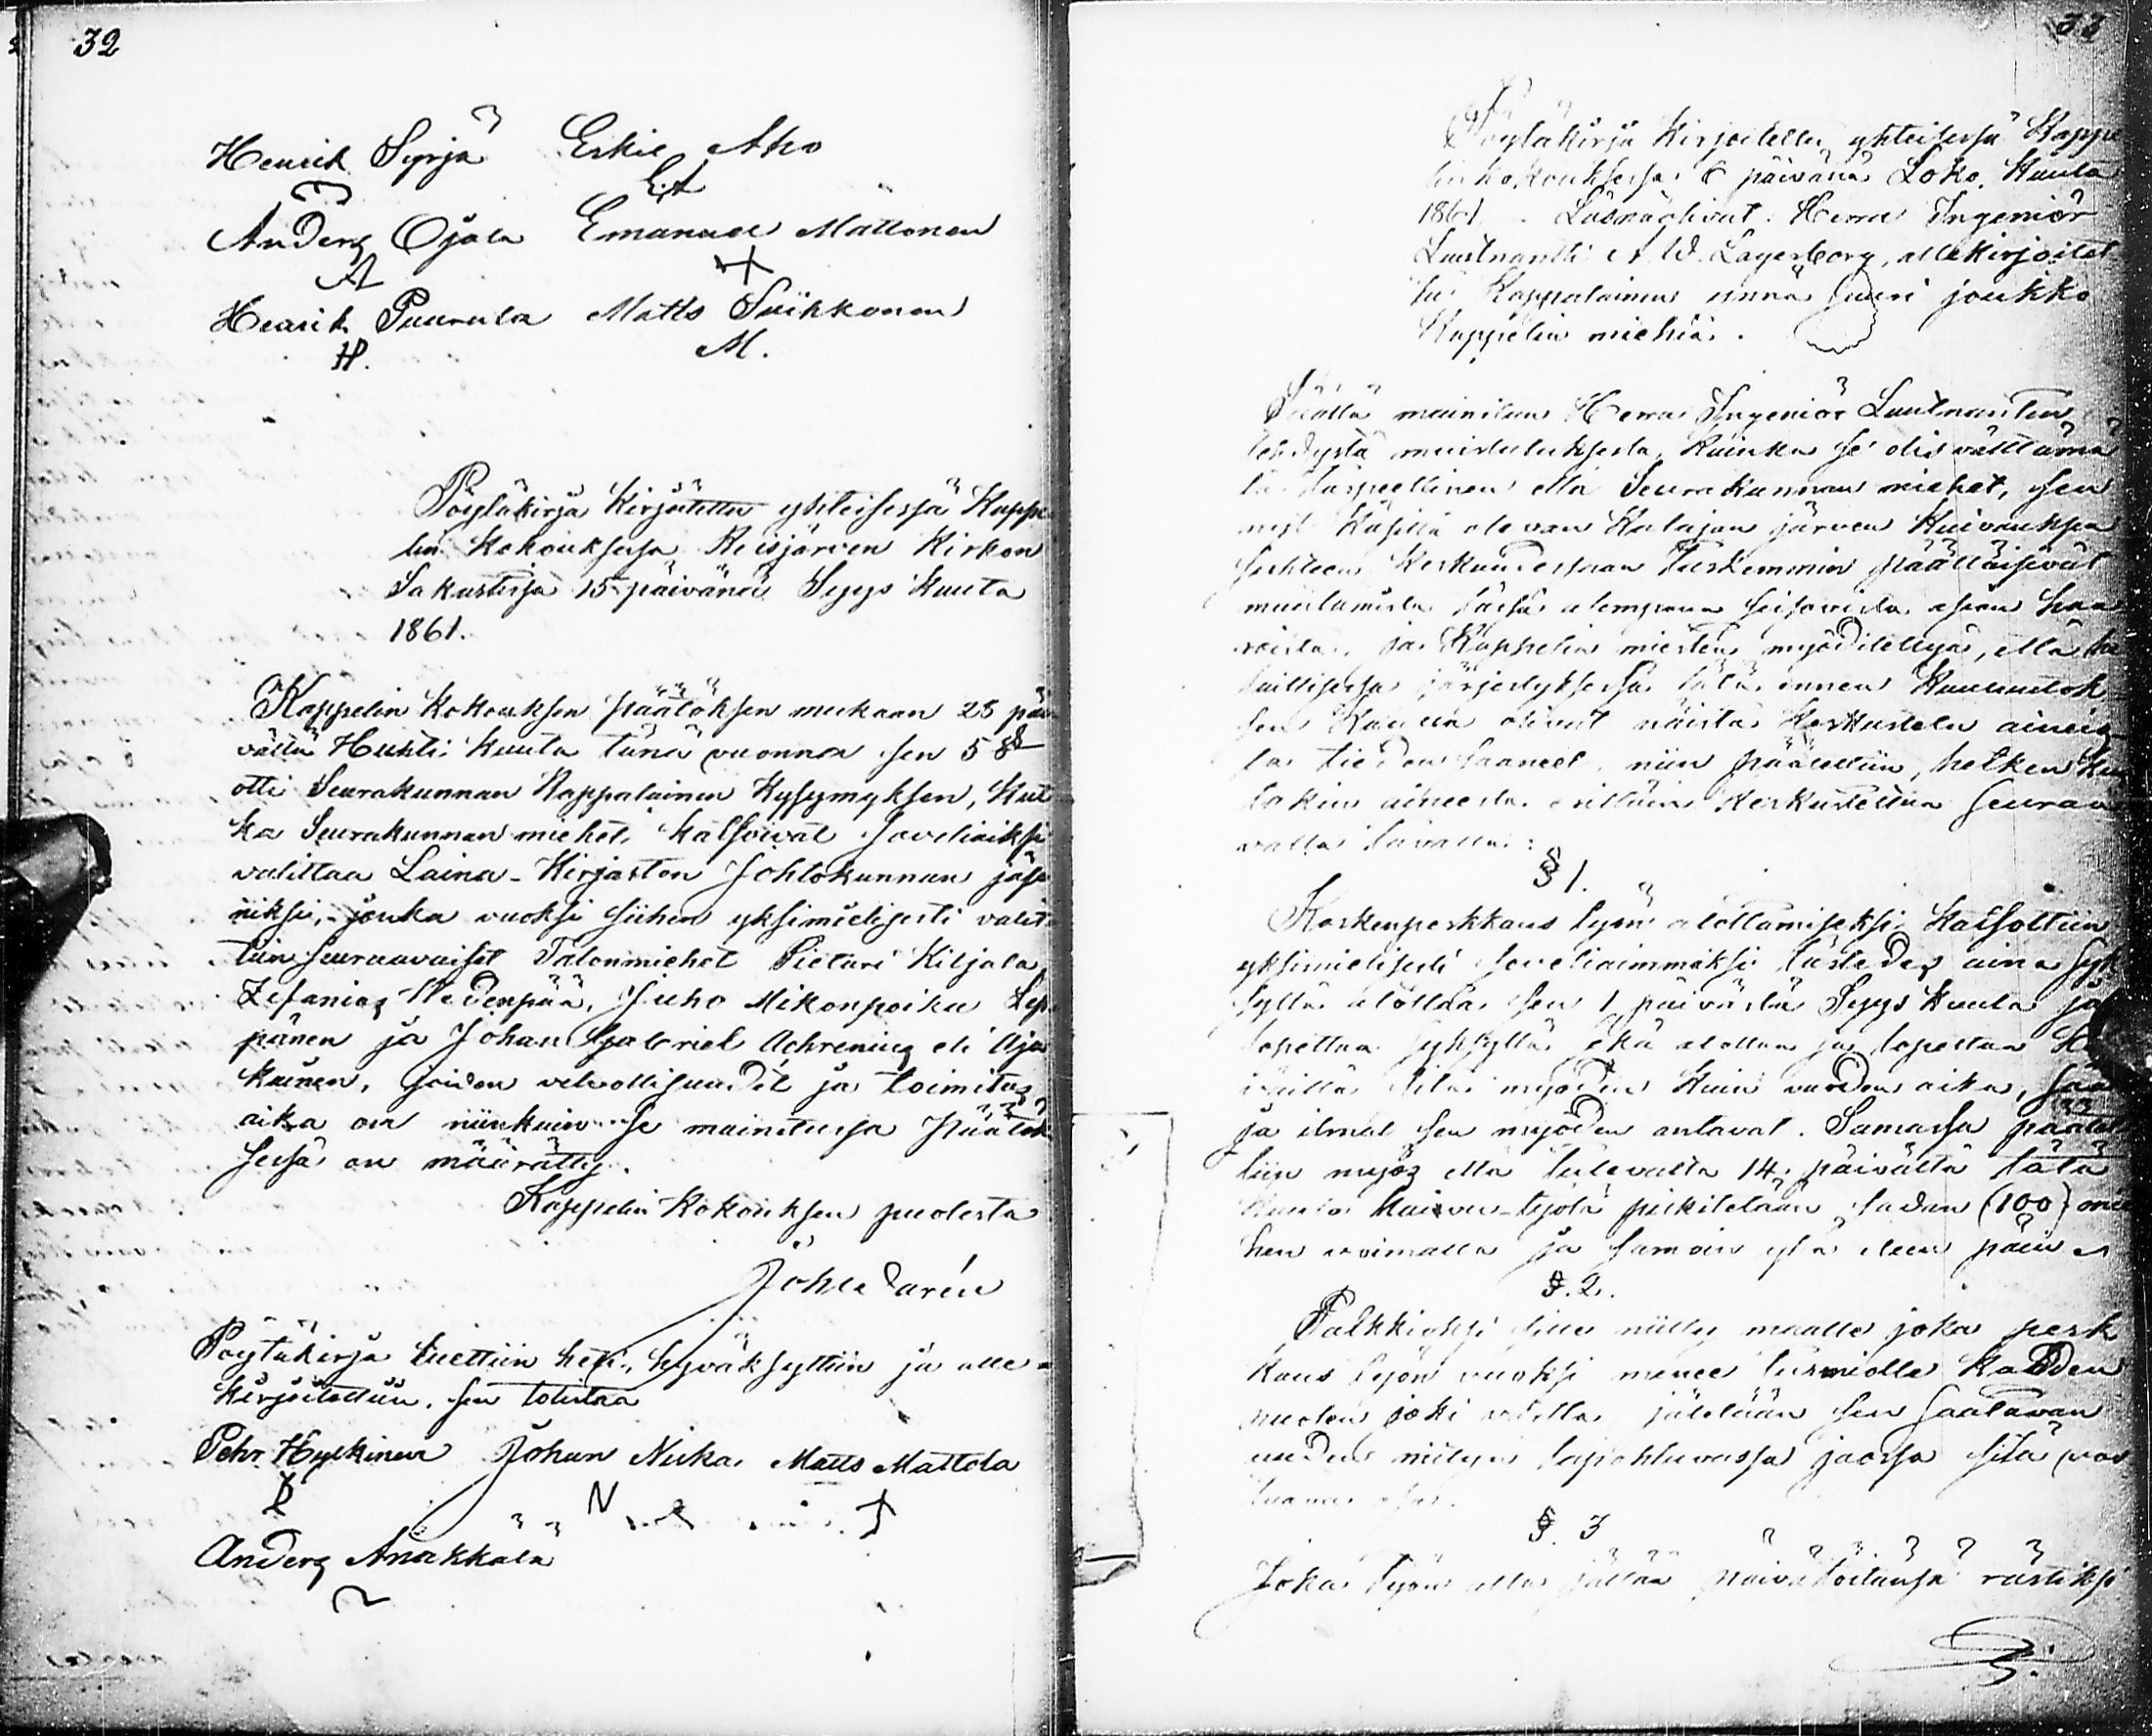 32
Henrik Syrjä Erkie Aho
E.A
Anders Ojala Emanuel Mattonen
A
Henrik Puurula Matts Suikkonen
H. M.
Pöytäkirja Kirjoitettu yhteisessä Kappe
lin Kokouksessa Reisjärven Kirkon
Sakastissa 15 päivänä Syys Kuuta
1861.
Kappelin Kokouksen päätöksen mukaan 28 päi
vältä Huhti Kuuta tänä vuonna sen 5 §
otti Seurakunnan Kappalainen Kysymyksen, Kut
ka Seurakunnan miehet katsoivat soveliaiksi
valittaa Laina-Kirjaston Johtokunnan jäse
niksi, jonka vuoksi siihen yksimielisesti valit
tiin seuraavaiset Talonmiehet Pietari Kiljala
Zefanias Wedenpää, Juho Mikonpoika Lep
pänen ja Johan Gabriel Achrenius eli Aja
kainen, joiden velvollisuudet ja toimitus
aika on niinkuin se mainitussa Päätök
sessä on määrätty.
Kappelin Kokouksen puolesta
Joh.
Pöytäkirja luettiin heti, hyväksyttiin ja alle
kirjoitettiin. sen todistaa
Pehr Hylkinen Johan Niska Matts Mattola
P N
Anders Anakkala
33
Pöytäkirja Kirjoitettu yhteisessä Kappe
lin kokouksessa 6 päivänä Loko Kuuta
1861. Läsnäolivat: Herra Ingeniör
Luutnantti A. W. Lagerborg, allekirjoitet
tu Kappalainen ynnä suuri joukko
Kappelin miehiä.
Täällä mainitun Herra Ingeniör Luutnantin
tehdystä muistutuksesta, Kuinka se olis välttämä
tä tarpeellinen että Seurakunnan miehet, sen
nyt Käsillä olevan Kalajan järven Kuivauksen
suhteen Keskuudessaan tarkemmin päättäisivät
muutamista tässä alempana seisovista asian haa
roista, ja Kappelin miesten myöditettyä, että he
laillisessa järjestyksessä tätä ennen Kuulutok
sen Kautta olivat näistä Keskustelu aineis
ta tiedon saaneet, niin päätettiin, hetken kus
takin aineesta erittäin Keskusteltua seuraa
valla tavalla:
§ 1.
Koskenperkkaus työn alottamiseksi Katsottiin
yksimielisesti soveliaimmaksi tästedes aina syk
syllä alottaa sen 1 päivästä Syys Kuuta ja
lopettaa syksyllä eikä alottaa ja lopettaa
sitä myöden Kuin vuoden aika, sää
ja ilmat sen myöden antavat. Samassa päätet
tiin myös että tulevalta 14 päivältä tätä
Kuuta kaivu-työtä pikitetään sadan (100) mie
hen voimalla ja samoin ylös eteen päin.
§. 2.
Palkkioksi sille niitty maalle joka perk
kaus työn vuoksi menee turmiolle kahden
puolen joki vartta jätetään sen saatavan
uuden niityn tapahtuvassa jaossa sitä vas
taava osa.
§. 3
Joka työn alla jättää päivätöitänsä rästiksi